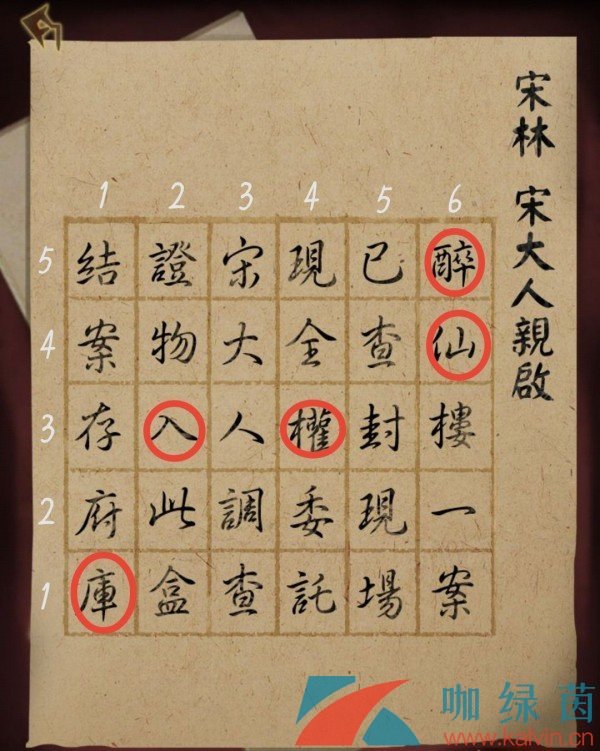 宋林 宋大人親啟
1 2 3 4 5 6
5 4 3 2 1
醉仙樓一案
已查封現場
現全權委託
宋大人調查
證物入此盒
結案存府庫
咖绿茵
www.kalvin.cn